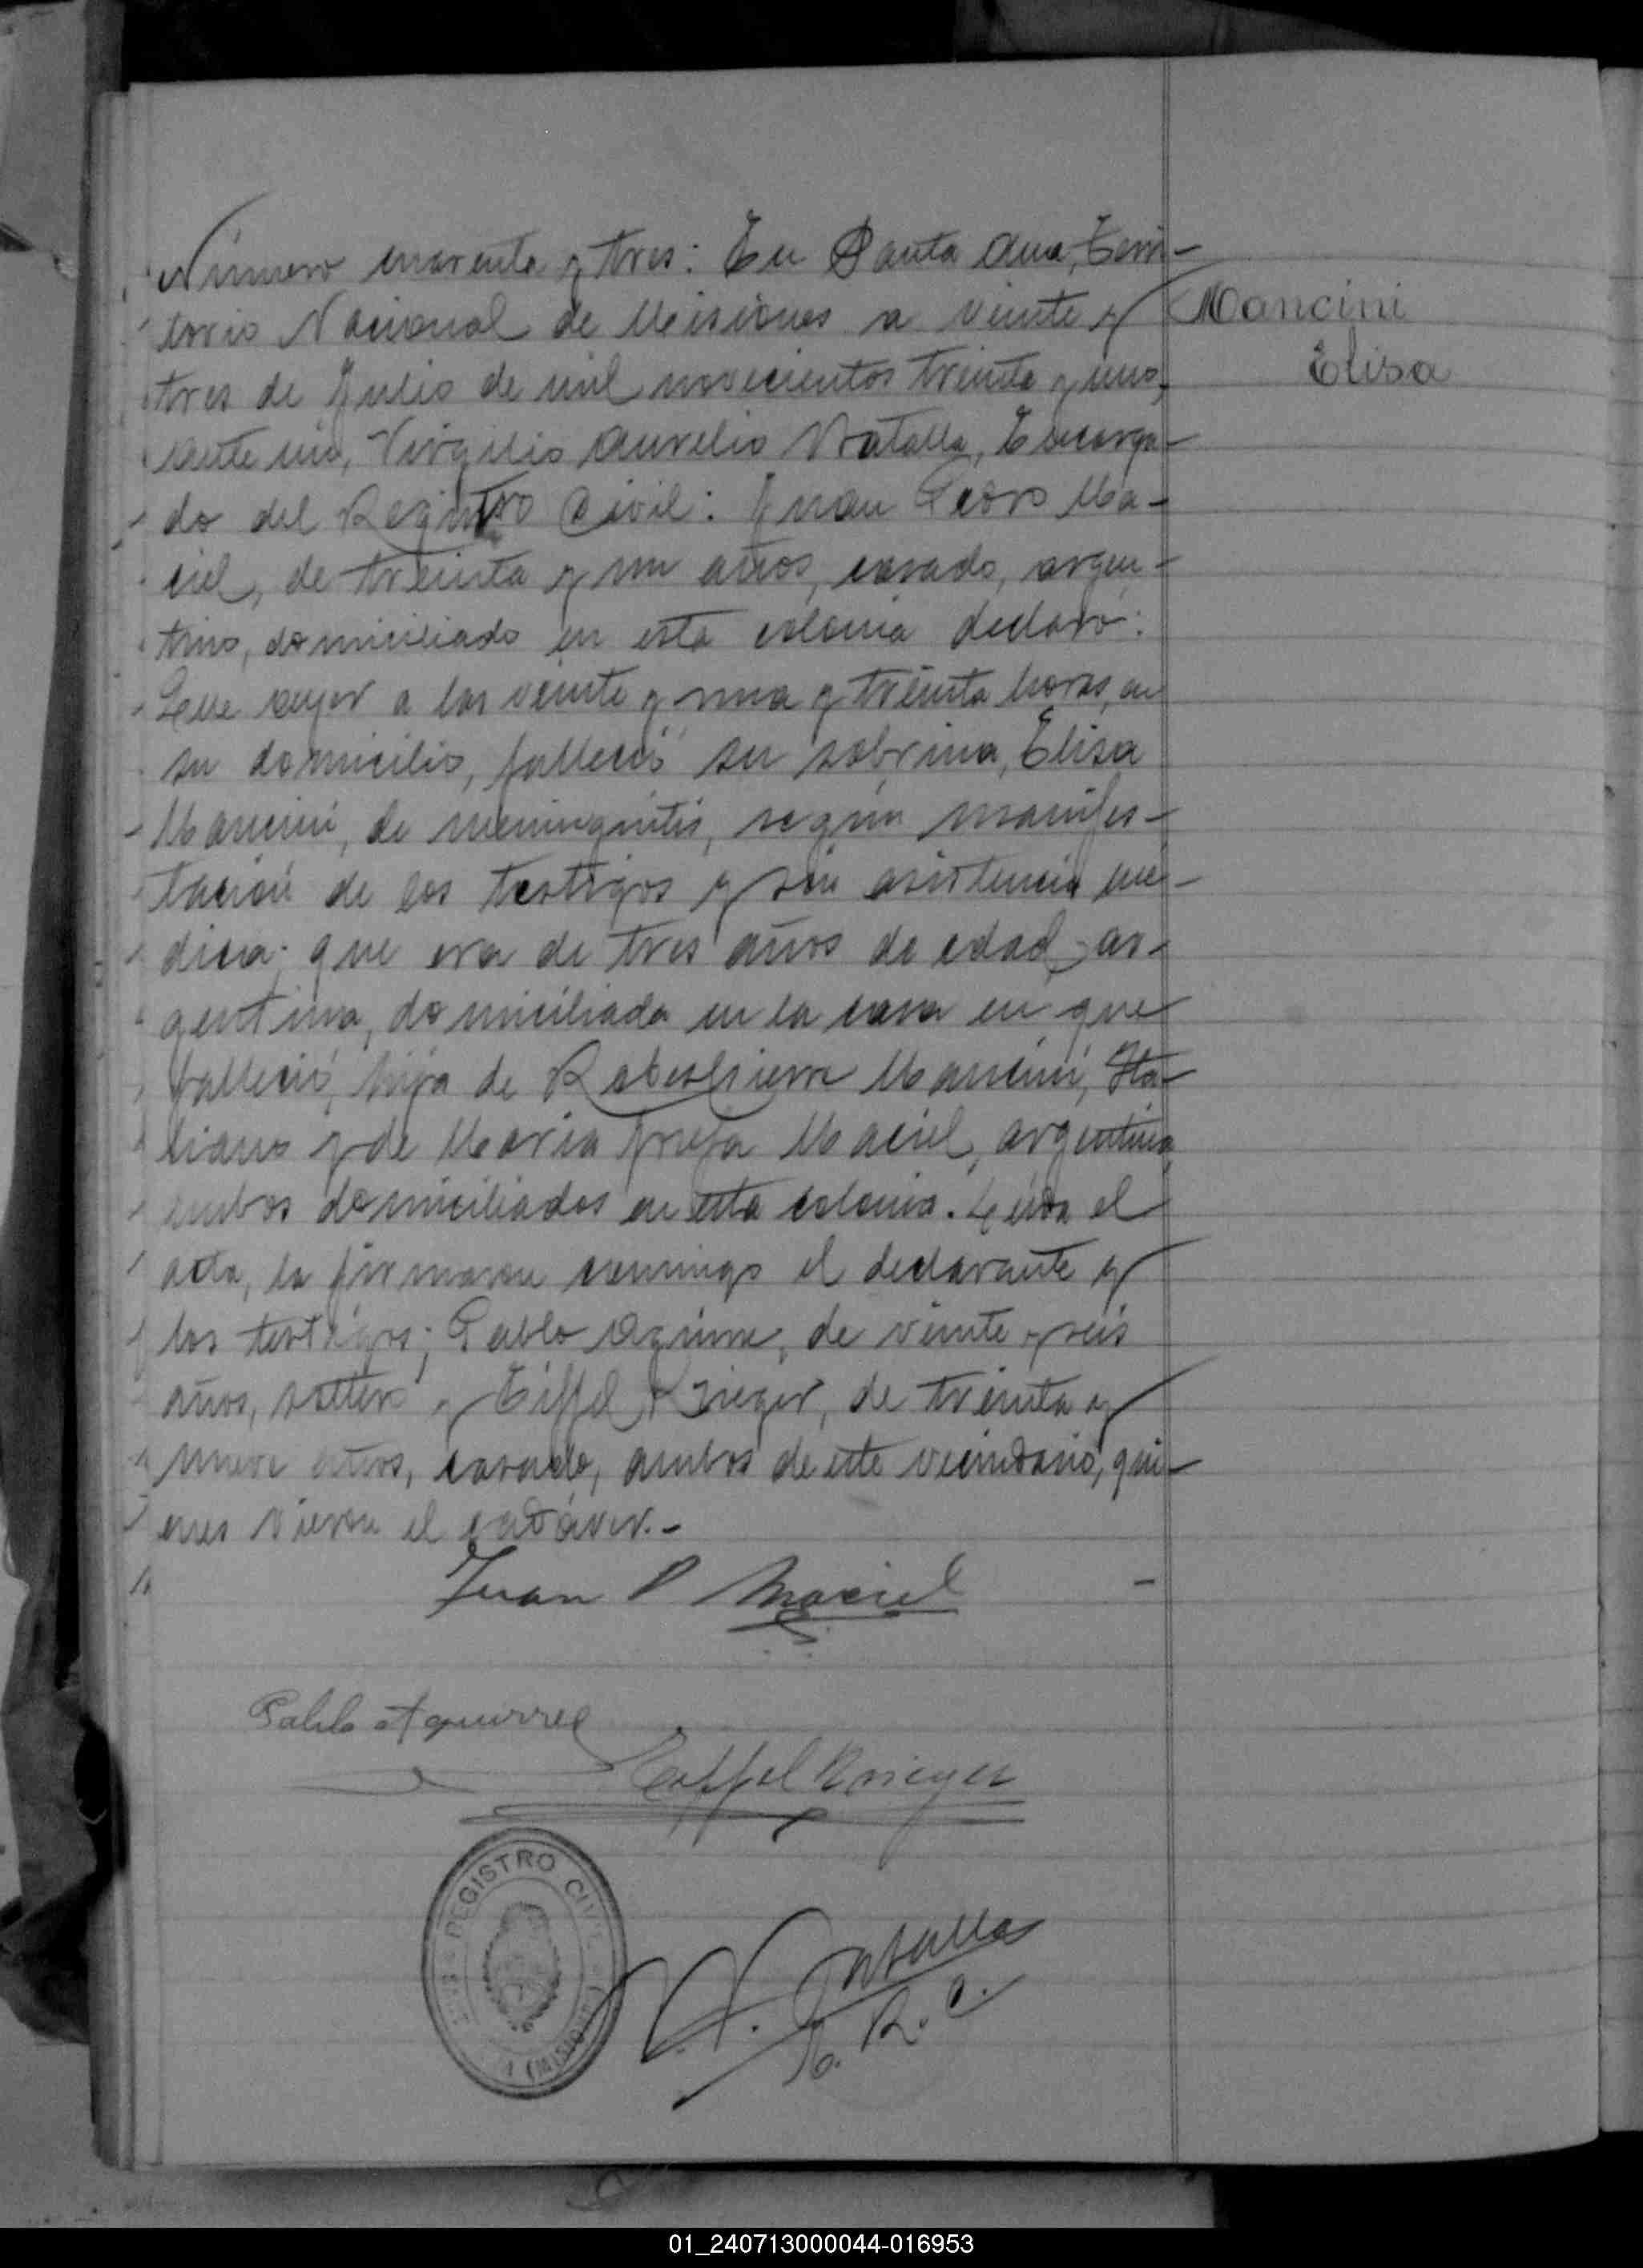 Número cuarenta y tres: En Santa Ana, Terri-
torio Nacional de Misiones a veinte y
tres de Julio de mil novecientos treinta y uno,
ante mi, Virgilio Aurelio Natalla, Encarga-
do del Registro Civil: Juan Pedro Ma-
ciel, de treinta y un años, casado, argen-
tino, domiciliado en esta colonia declaró:
Que ayer a las veinte y una y treinta horas, en
su domicilio, falleció su sobrina, Elisa
Mancini, de meningitis, según manifes-
tación de los testigos y sin asistencia mé-
dica; que era de tres años de edad, ar-
gentina, domiciliada en la casa en que
falleció, hija de Mancini, Ita-
liano y de Maria Maciel, argentina
ambos domiciliados en esta colonia. Leida el
acta, la firmaron conmigo el declarante y
los testigos; Pablo Aguirre, de veinte y seis
años, soltero y Eiffel Krieger, de treinta y
nueve años, casado, ambos de este vecindario, qui-
enes vieron el cadáver.-
Mancini
Elisa
Juan P Maciel
Pablo Aguirre
Eiffel Krieger
REGISTRO CIVIL
(MISIONES)
V. Natalla
E. R. C.
01_240713000044-016953